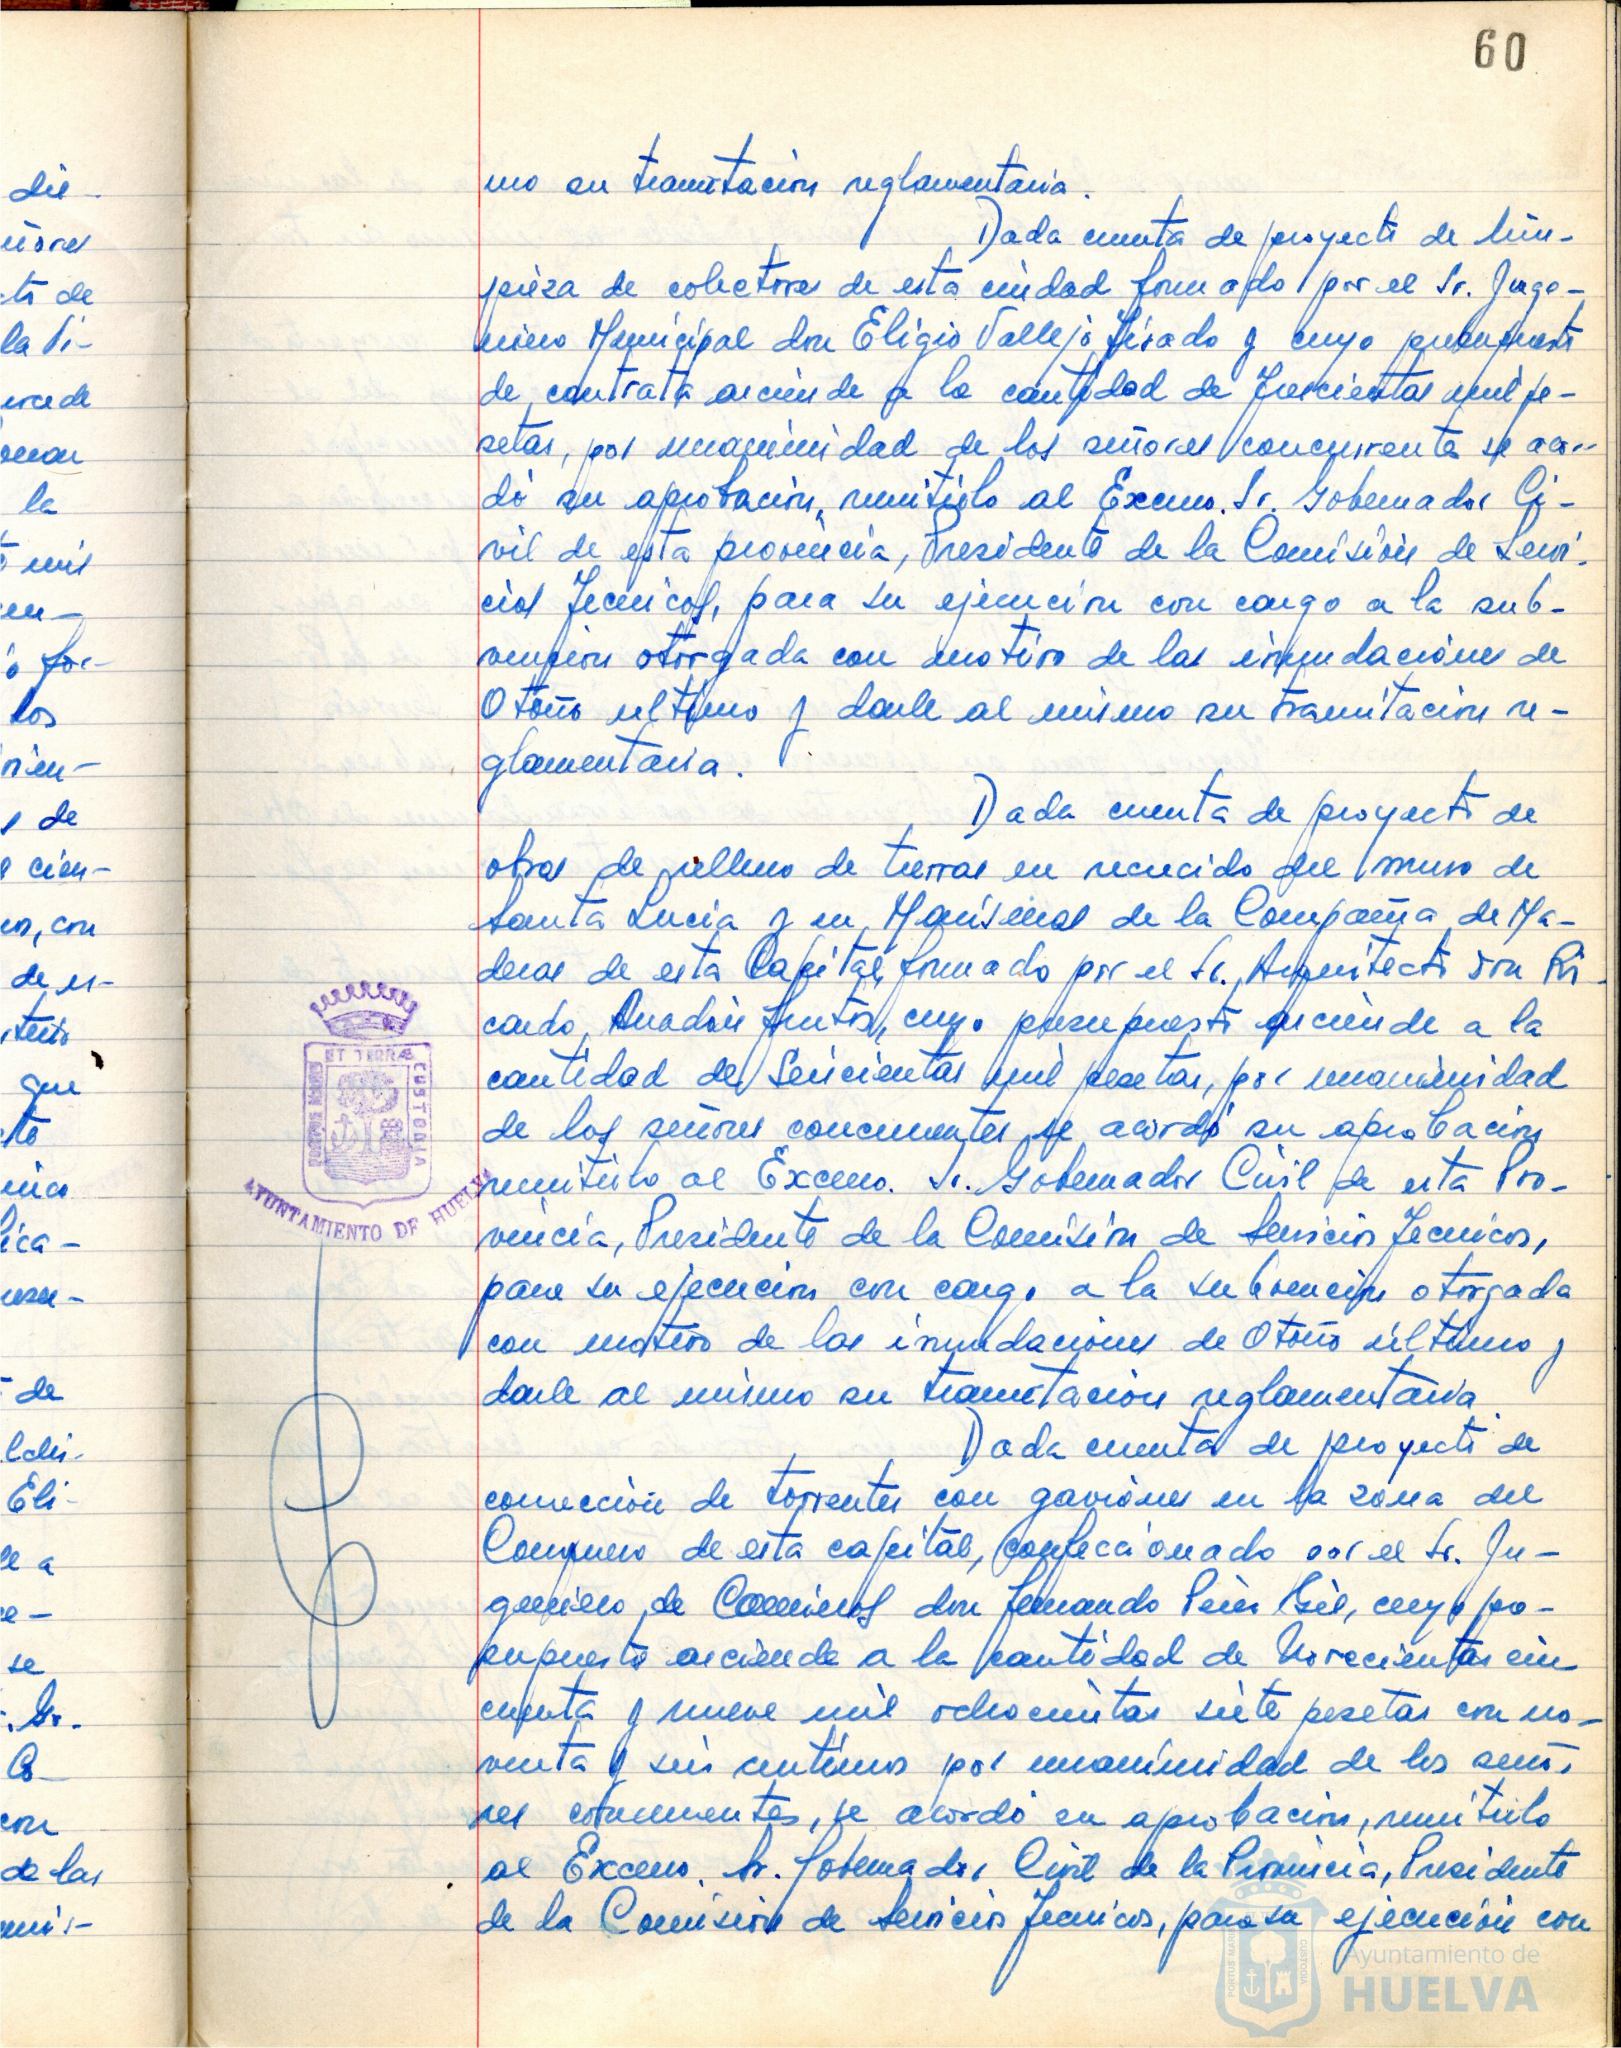 60
mo su tramitación reglamentaria.
Dada cuenta de proyecto de lim-
pieza de colectores de esta ciudad formado por el Sr. Inge-
niero Municipal don Eligio Vallejo Tirado y cuyo presupuesto
de contrata asciende a la cantidad de Trescientas mil pe-
setas, por unanimidad de los señores concurrentes se acor-
dó su aprobación, remitirlo al Excmo. Sr. Gobernador Ci-
vil de esta provincia, Presidente de la Comisión de Servi-
cios Tecnicos, para su ejecución con cargo a la sub-
vención otorgada con motivo de las inundaciones de
Otoño ultimo y darle al mismo su tramitación re-
glamentaria.
Dada cuenta de proyecto de
obras de relleno de tierras en recrecido del muro de
Santa Lucia y en Marismas de la Compañia de Ma-
deras de esta Capital, formado por el Sr. Arquitecto don Ri-
cardo Anadón Frutos, cuyo presupuesto asciende a la
cantidad de Seiscientas mil pesetas, por unanimidad
de los señores concurrentes se acordó su aprobación
remitirlo al Excmo. Sr. Gobernador Civil de esta Pro-
vincia, Presidente de la Comisión de Servicios Tecnicos,
para su ejecución con cargo a la subvención otorgada
con motivo de las inundaciones de Otoño último y
darle al mismo su tramitación reglamentaria.
Dada cuenta de proyecto de
corrección de torrentes con gaviones en la zona del
Conquero de esta capital, confeccionado por el Sr. In-
geniero de Caminos don Fernando Peiro Gil, cuyo pre-
supuesto asciende a la cantidad de Novecientas cin-
cuenta y nueve mil ochocientas siete pesetas con no-
venta y seis centimos por unanimidad de los seño-
res concurrentes, se acordó su aprobación, remitirlo
al Excmo. Sr. Gobernador Civil de la Provincia, Presidente
de la Comisión de Servicios Tecnicos, para su ejecución con
PORTUS MARIS ET TERRÆ CUSTODIA
AYUNTAMIENTO DE HUELVA
Ayuntamiento de
HUELVA